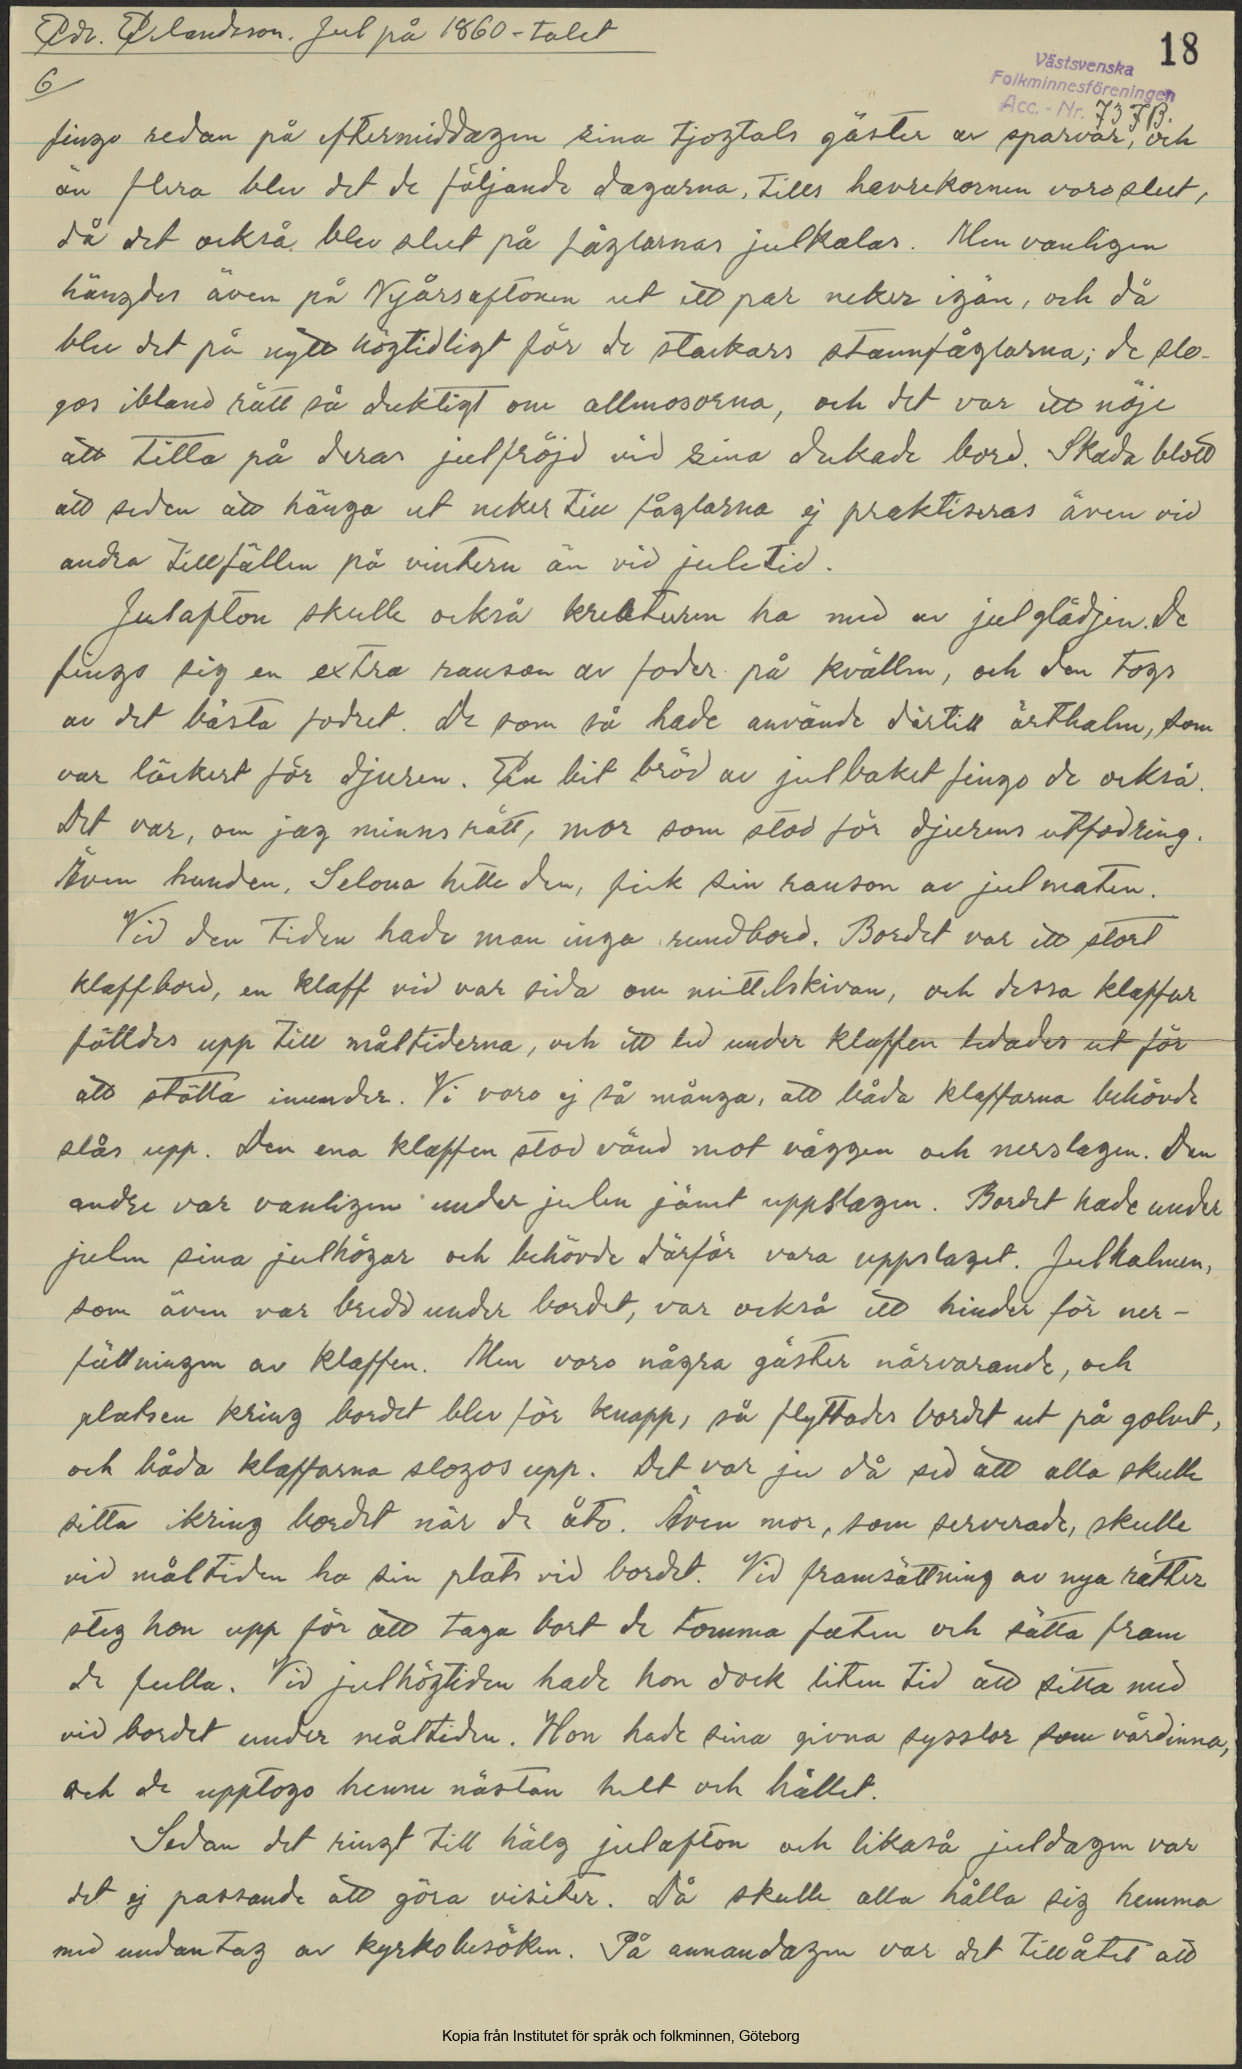 Edv. Erlandsson. Jul på 1860-talet
18
6
Västsvenska
Folkminnesföreningen
Acc.-Nr. 737B.
fingo redan på eftermiddagen sina tjogtals gäster av sparvar, och
än flera blev det de följande dagarna, tills havrekornen voro slut,
då det också blev slut på fåglarnas julkalas. Men vanligen
hängdes även på Nyårsaftonen ut ett par neker igän, och då
blev det på nytt högtidligt för de stackars stannfåglarna; de slo-
gos ibland rätt så duktigt om allmosorna, och det var ett nöje
att titta på deras julfröjd vid sina dukade bord. Skada blott
att seden att hänga ut neker till fåglarna ej praktiseras även vid
andra tillfällen på vintern än vid juletid.
Julafton skulle också kreaturen ha med av julglädjen. De
fingo sig en extra ranson av foder på kvällen, och den togs
av det bästa fodret. De som så hade använde därtill ärthalm, som
var läckert för djuren. En bit bröd av julbaket fingo de också.
Det var, om jag minns rätt, mor som stod för djurens utfodring.
Även hunden, Selona hette den, fick sin ranson av julmaten.
Vid den tiden hade man inga rundbord. Bordet var ett stort
klaffbord, en klaff vid var sida om mittelskivan, och dessa klaffar
fälldes upp till måltiderna, och ett led under klaffen ledades ut för
att stötta inunder. Vi voro ej så många, att båda klaffarna behövde
slås upp. Den ena klaffen stod vänd mot väggen och nerslagen. Den
andre var vanligen under julen jämt uppslagen. Bordet hade under
julen sina julhögar och behövde därför vara uppslaget. Julhalmen,
som även var bredd under bordet, var också ett hinder för ner-
fällningen av klaffen. Men voro några gäster närvarande, och
platsen kring bordet blev för knapp, så flyttades bordet ut på golvet,
och båda klaffarna slogos upp. Det var ju då sed att alla skulle
sitta ikring bordet när de åto. Även mor, som serverade, skulle
vid måltiden ha sin plats vid bordet. Vid framsättning av nya rätter
steg hon upp för att taga bort de tomma faten och sätta fram
de fulla. Vid julhögtiden hade hon dock liten tid att sitta med
vid bordet under måltiden. Hon hade sina givna sysslor som värdinna,
och de upptogo henne nästan helt och hållet.
Sedan det ringt till hälg julafton och likaså juldagen var
det ej passande att göra visiter. Då skulle alla hålla sig hemma
med undantag av kyrkobesöken. På annandagen var det tillåtet att
Kopia från Institutet för språk och folkminnen, Göteborg